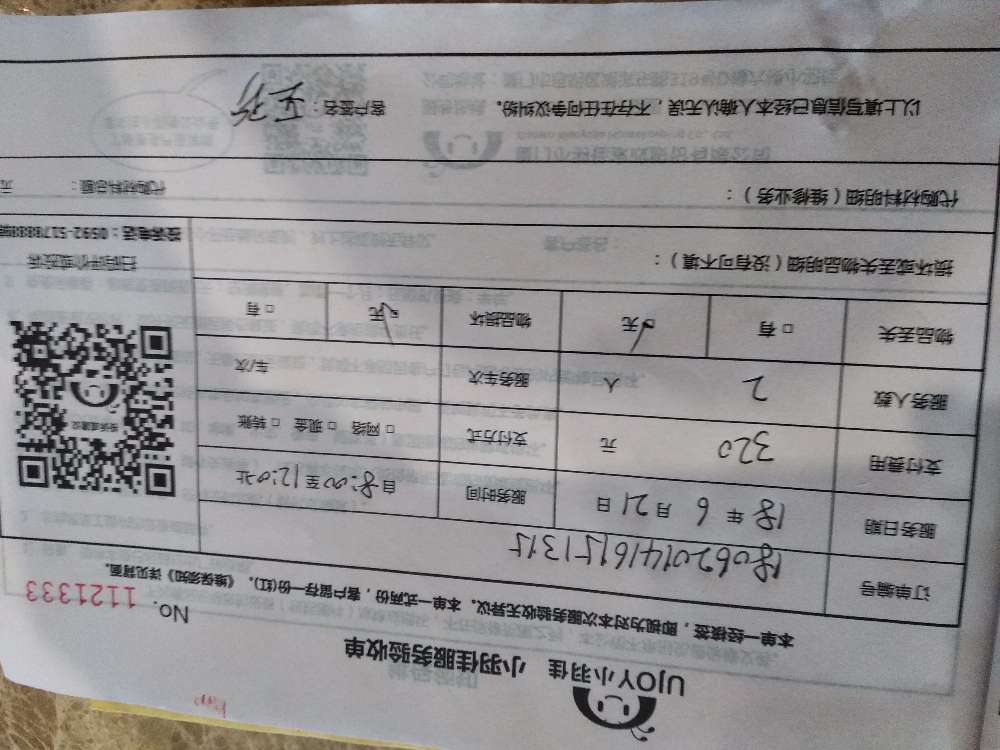 UJOY小羽佳 小羽佳服务验收单
No. 1121333
本单一经接签，即视为对本次服务验收无异议。本单一式两份，客户留存一份(红)。《维保须知》详见背面。
订单编号 180620141615131５
服务日期 18 年 6 月 21 日 服务时间 自8:00至12:00止
支付费用 320 元 支付方式 □ 网络 □ 现金 □ 转账
服务人数 2 人 服务车次 车/次
物品丢失 □ 有 ☑无 物品损坏 ☑无 □ 有
扫码评价或投诉
投诉电话：0592-5178888
损坏或丢失物品明细（没有可不填）：
代购材料明细（维修业务）： 代购材料总额： 元
以上填写信息已经本人确认无误，不存在任何争议纠纷。 客户签名：